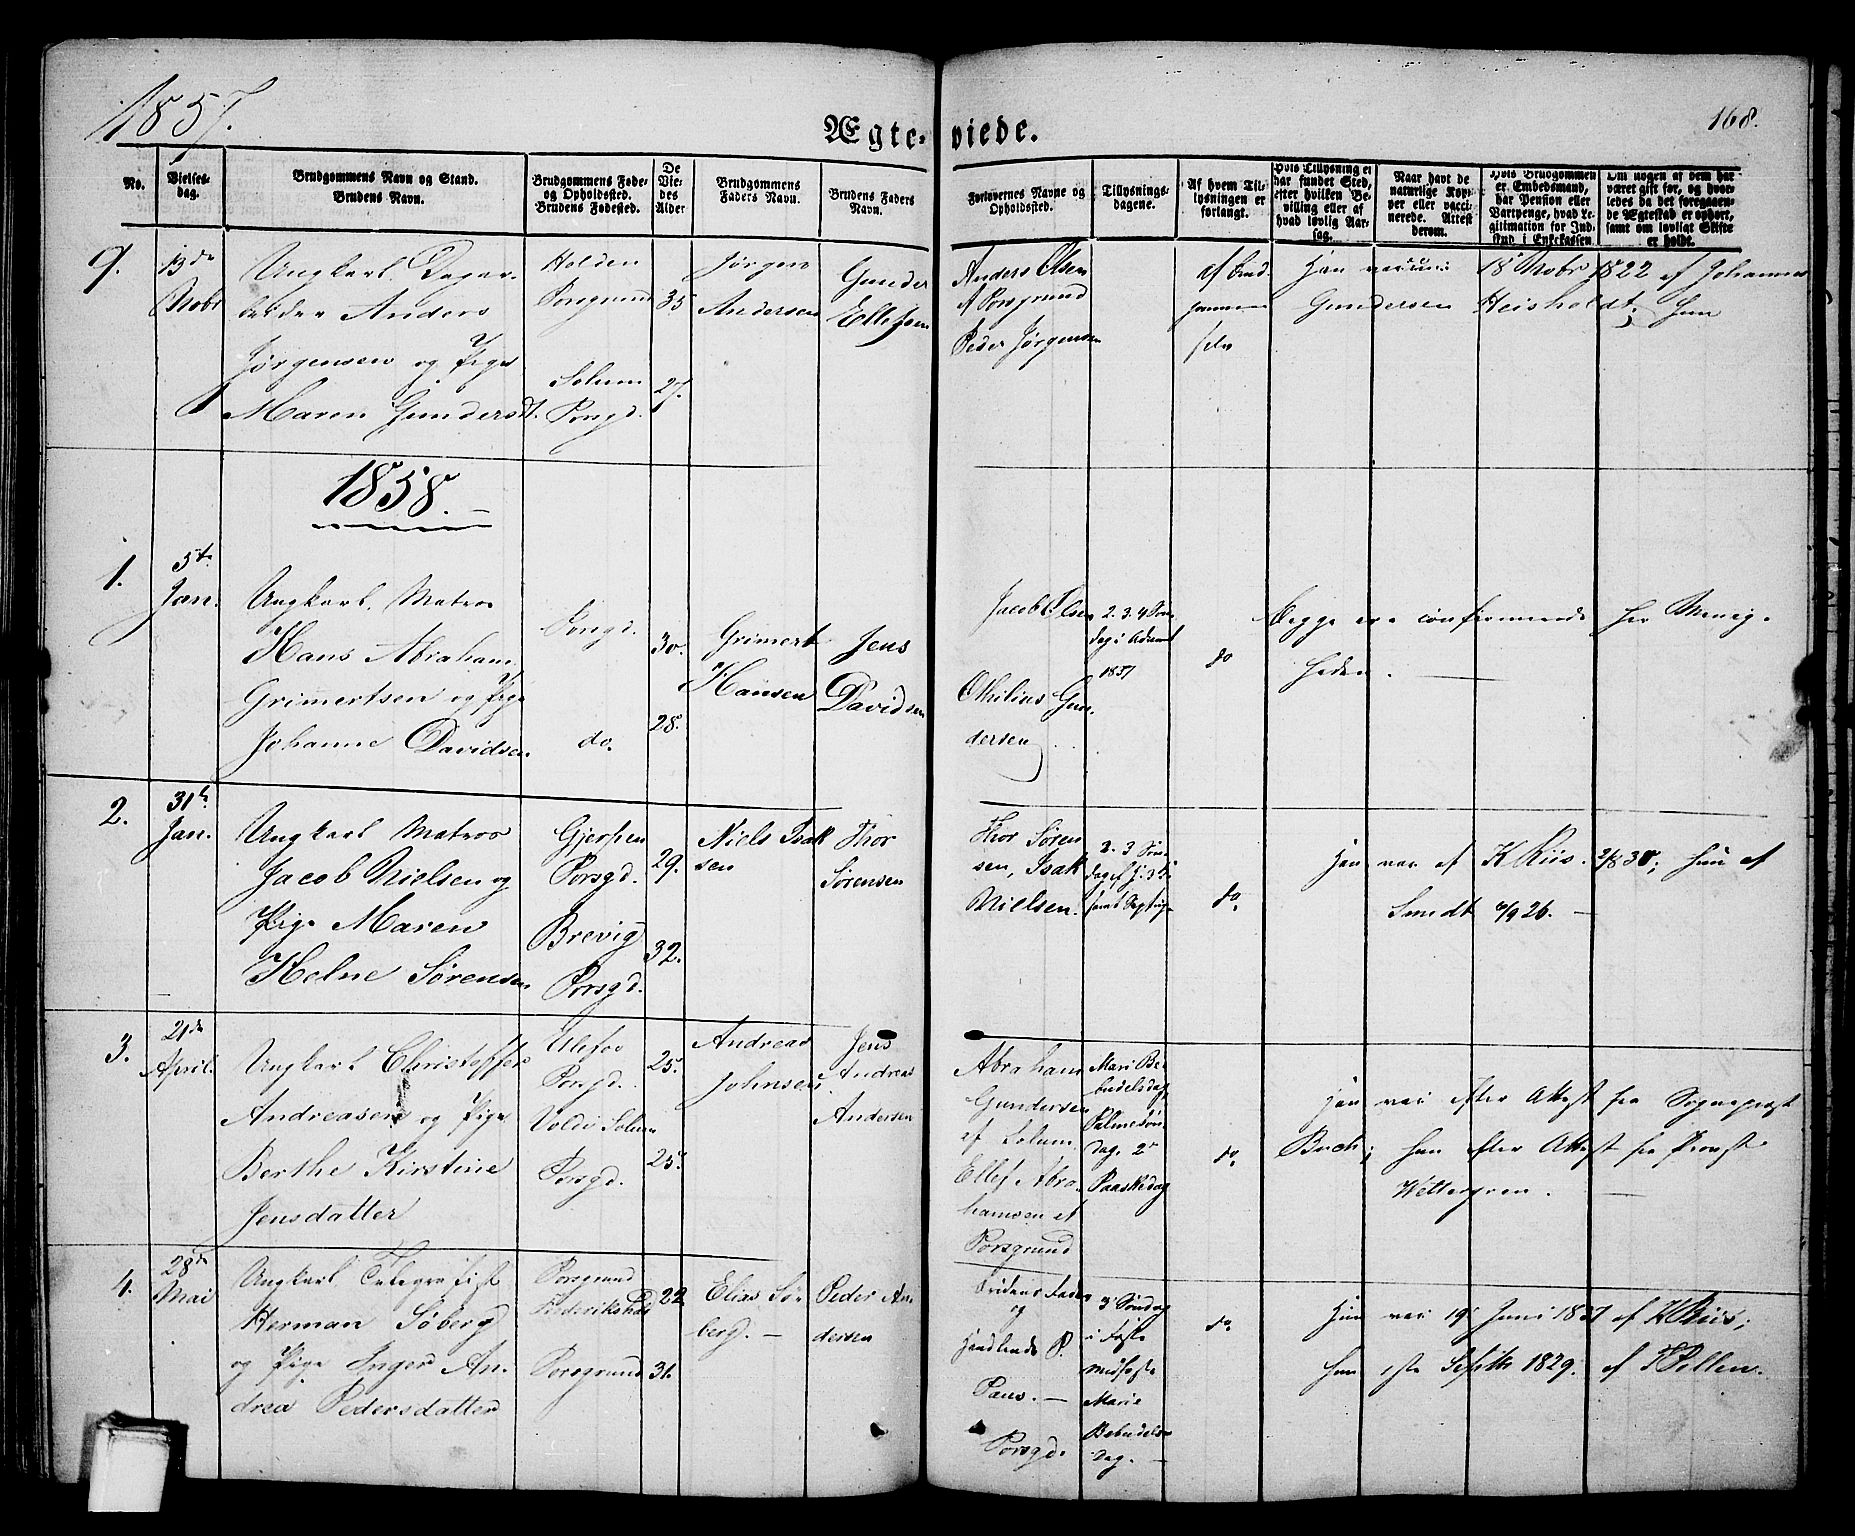 1857.
168.
Ægte-viede.
No.
Vielses-
dag.
Brudgommens Navn og Stand.
Brudens Navn.
Brudgommens Føde-
og Opholdssted.
Brudens Fødested.
De
Vie-
des
Alder
Brudgommens
Faders Navn.
Brudens Faders
Navn.
Forlovernes Navne og
Opholdssted.
Tillysnings-
dagene.
Af hvem Til-
lysningen er
forlangt.
Hvis Tillysning ei
har fundet Sted,
efter hvilken Be-
villing eller af
hvad lovlig Aar-
sag.
Naar havt de
naturlige Kop-
per eller vacci-
nerede. Attest
derom.
Hvis Brudgommen
er Embedsmand,
har Pension eller
Vartpenge, hvad Le-
gitimation for Ind-
skud i Enkekassen.
Om nogen af dem har
været gift før, og hvor-
ledes da det foregaaen-
de Ægteskab er ophørt,
samt om lovligt Skifte
er holdt.
9.
13de
Nobr
Ungkarl Dagar-
beider Anders
Jørgensen og Pige
Maren Gundersdt.
Holden
Porsgrund
Solum
Porsgd.
35
27.
Jørgen
Andersen
Gunder
Ellefsen
Anders Olsen
af Porsgrund
Peder Jørgensen
af Brud-
gommen
selv
Han vac: 18 Nobr 1822 af Johannes
Gundersen Heisholdt; hun
1858.
1.
5te
Jan.
Ungkarl. Matros
Hans Abraham
Grimertsen og Pige
Johanne Davidsen
Porsgd.
do.
30.
28.
Grimert
Hansen
Jens
Davidsen
Jacob Olsen
Othilius Gun-
dersen
2. 3. 4 Søn-
dag i Advent
1857
do
Begge ere confirmerede her Menig-
heden.
2.
31te
Jan.
Ungkarl Matros
Jacob Nielsen og
Pige Maren
Helne Sørensen
Gjerpen
Porsgd.
Brevig
Porsgd.
29.
32.
Niels Isak-
sen
Thor
Sørensen
Thor Søren-
sen, Isak
Nielsen.
2. 3 Søn-
dag ef H. 3 K.
samt Septug-
do.
Han vac af K Riis. 2/8 30; hun af
Smidt 9/9 26.
3.
21de
April.
Ungkarl Christoffer
Andreasen og Pige
Berthe Kirstine
Jensdatter
Ulefos
Porsgd.
Vold i Solum
Porsgd.
25.
25.
Andreas
Johnsen
Jens
Andreas
Andersen
Abraham
Gundersen
af Solum
Ellef Abra-
hamsen af
Porsgrund
Mari Be-
budelsdag
Palmesøn-
dag. 2den
Paaskedag
do.
Han vac efter Attest fra Sognepræst
Buch; hun efter Attest fra Provst
Wettergren.
4.
28de
Mai
Ungkarl Telegrafist
Herman Söberg
og Pige Inger An-
drea Pedersdatter
Porsgrund
Frederikshald
Porsgrund
22
31.
Elias Sø-
berg.
Peder An-
dersen
Brudens Fader
og
Handlende P.
Paus.
Porsgd.
3 Søndag
i Faste
midfaste
Marie
Bebudelses
Dag.
do.
Han vac 19 Juni 1837 af K Riis;
hun 1ste Septbr 1829. af